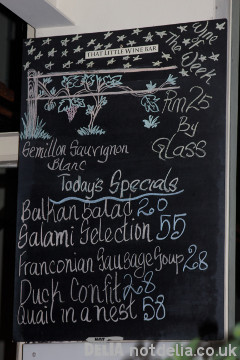 THAT LITTLE WINE BAR
Wine
The of
Week
Rm25
By
Glass
Semillon Sauvignon
Blanc
Today's Specials
Balkan Salad 20
Salami Selection 55
Franconian Sausage Soup 28
Duck Confit 28
Quail in a nest 58
DELIA notdelia.co.uk